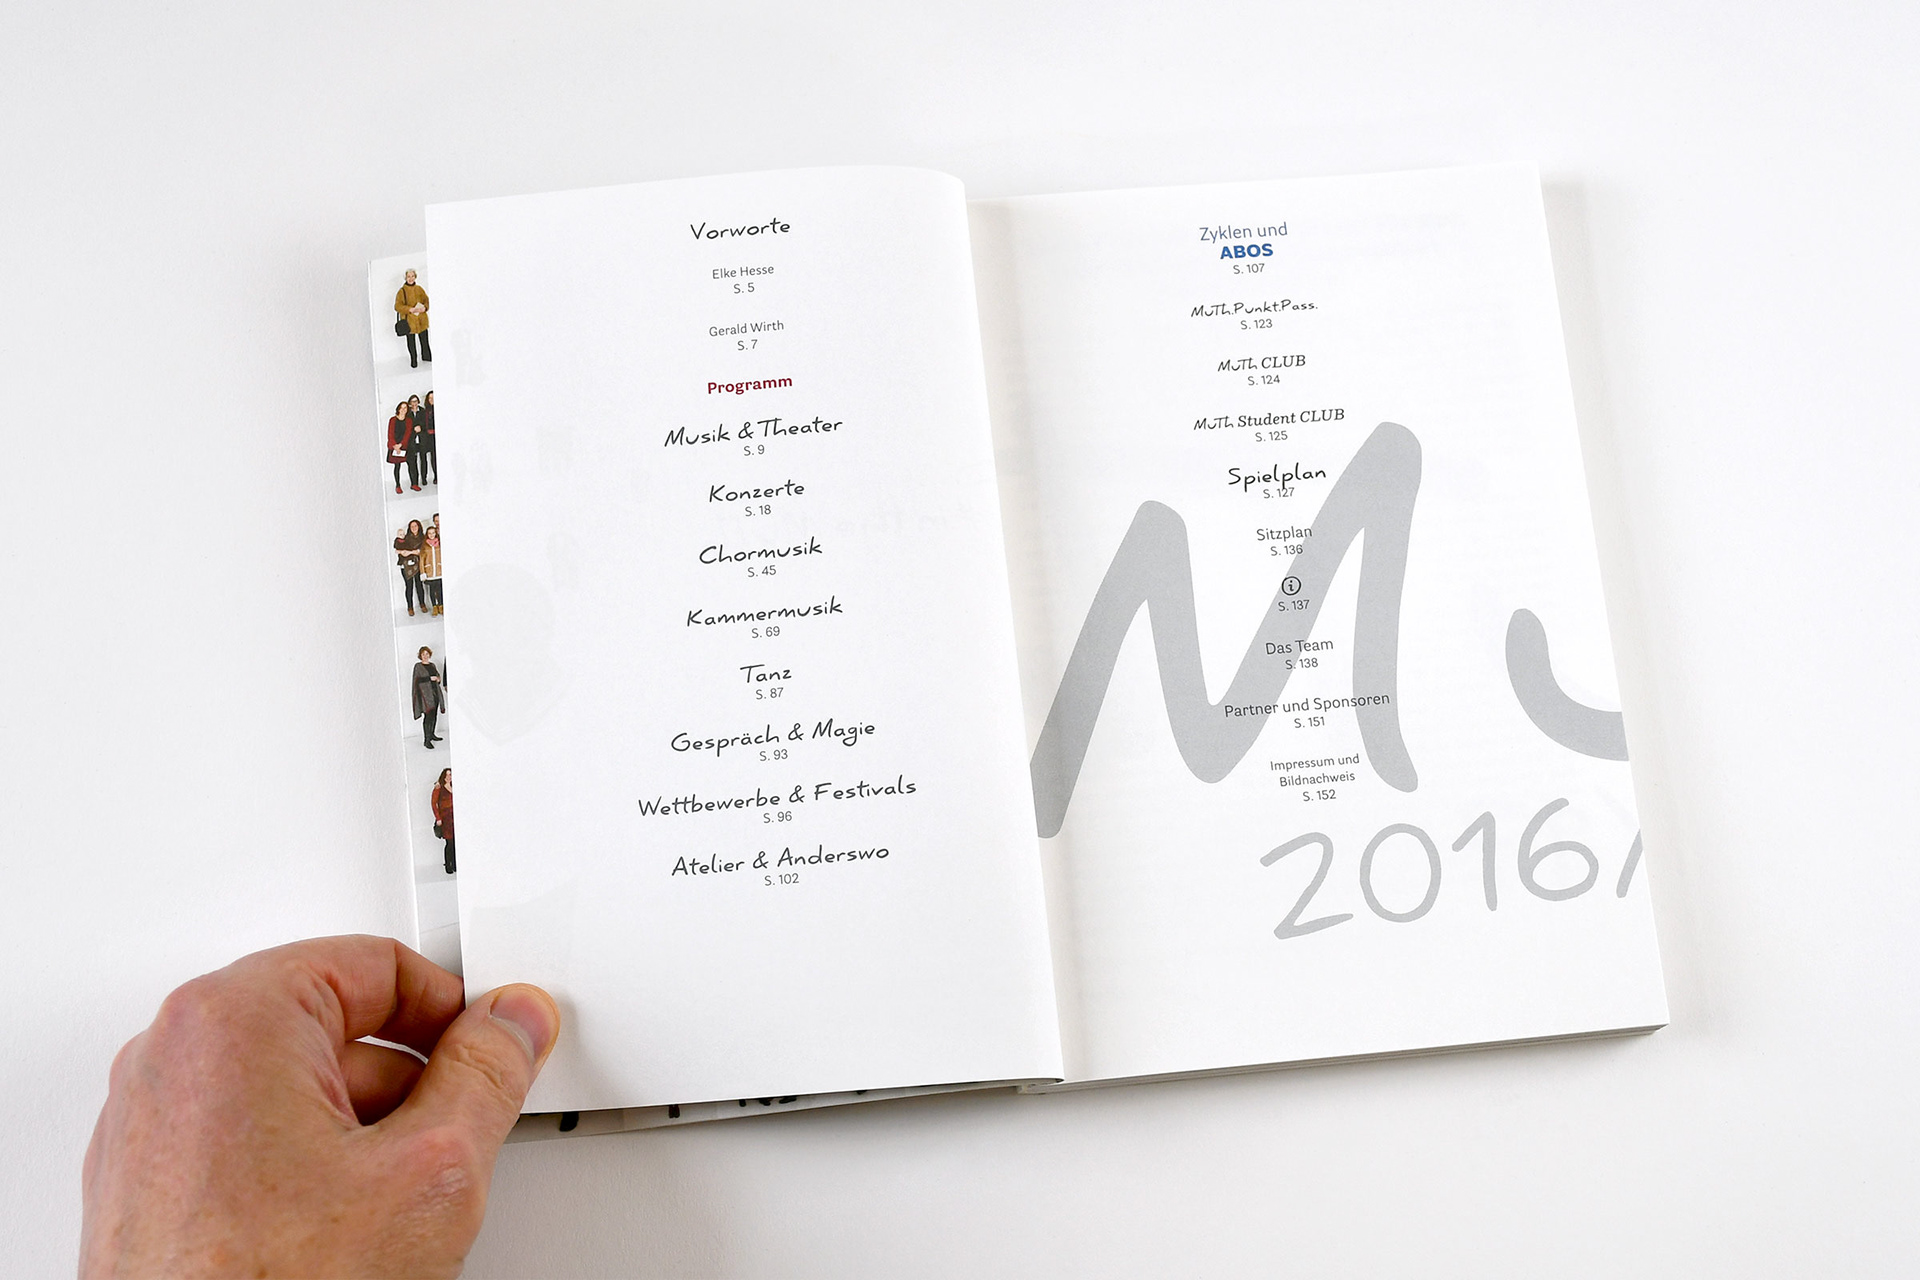 Vorworte
Elke Hesse
S. 5
Gerald Wirth
S. 7
Programm
Musik & Theater
S. 9
Konzerte
S. 18
Chormusik
S. 45
Kammermusik
S. 69
Tanz
S. 87
Gespräch & Magie
S. 93
Wettbewerbe & Festivals
S. 96
Atelier & Anderswo
S. 102
Zyklen und
ABOS
S. 107
MuTh.Punkt.Pass.
S. 123
MuTh CLUB
S. 124
MuTh Student CLUB
S. 125
Spielplan
S. 127
Sitzplan
S. 136
i
S. 137
Das Team
S. 138
Partner und Sponsoren
S. 151
Impressum und
Bildnachweis
S. 152
Mu
2016/